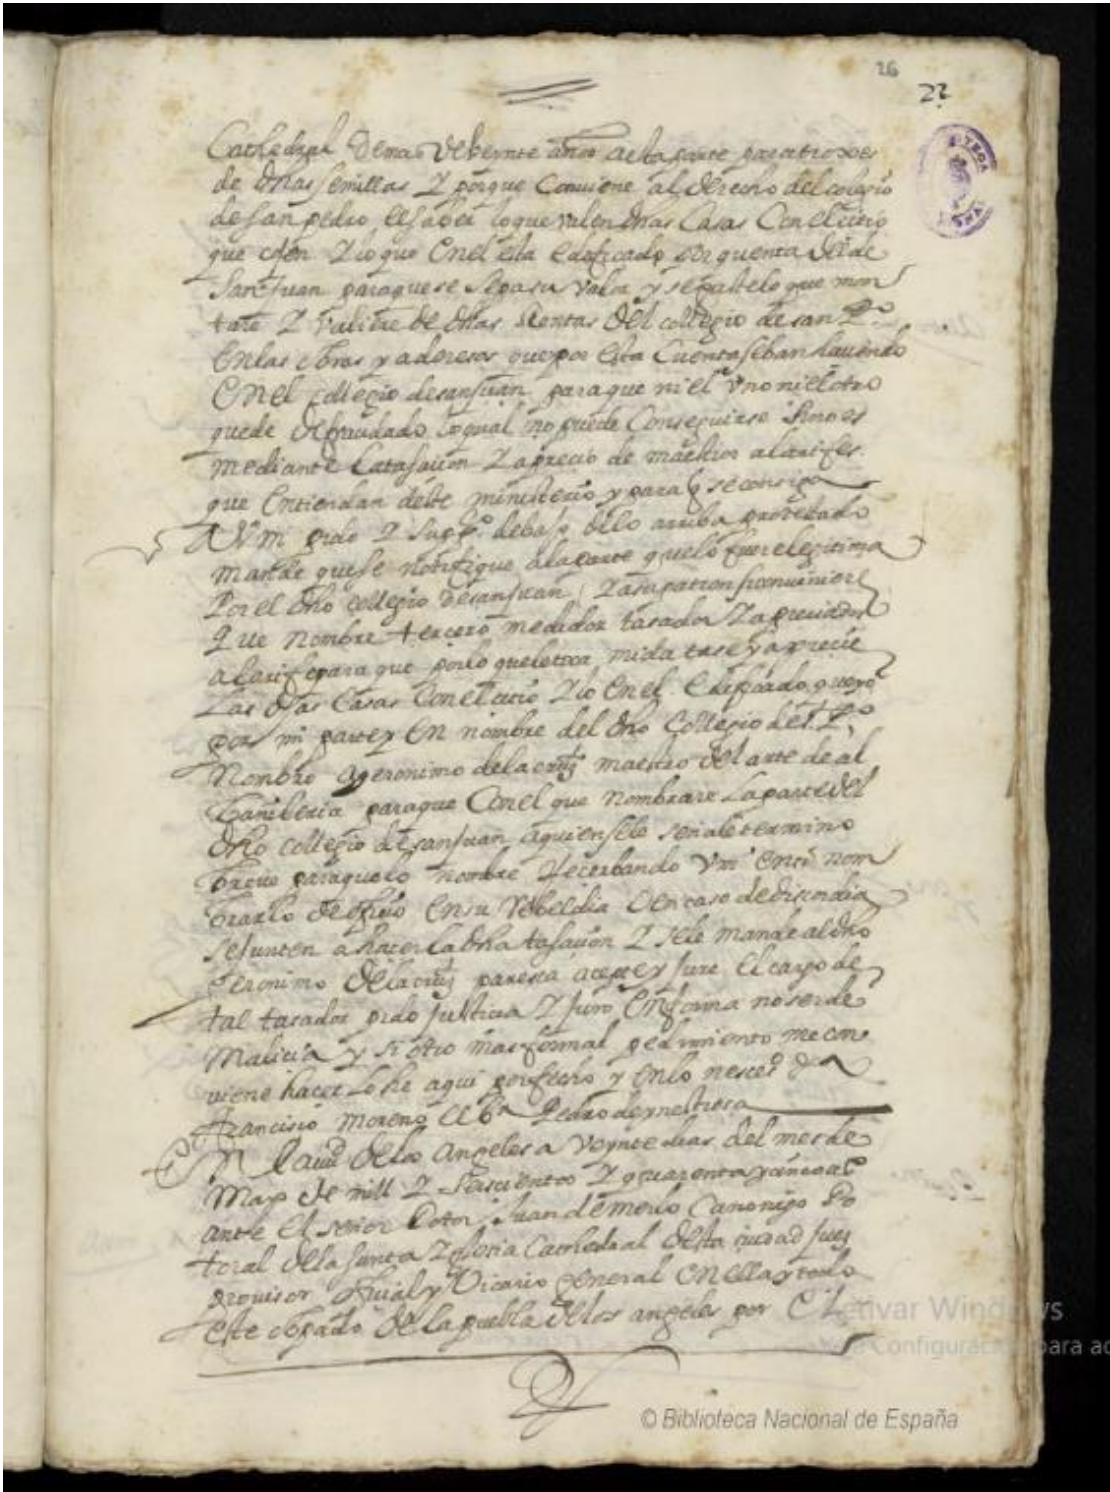 26
22
Cathedral demas debeynte años aesta parte para troxes
de dhas semillas Y porque Conuiene al derecho del colegio
de san pedro el saber lo que valen dhas Casas Con el citio
que cojen Y lo que en el esta edificado por quenta del de
San Juan para que se sepa su valor y se paste lo que mon
tare Y valiere de dhas Rentas del collegio de san P.º
en las obras y aderesos que por esta Cuenta se ban hauiendo
en el collegio de san Juan para que ni el vno ni el otro
quede defraudado lo qual no puede Conseguirse sino es
mediante la tasacion Y aprecio de maestros alarifes
que entiendan deste ministerio y para q se consiga
A Vm pido Y supp.º debajo de lo arriba protestado
mande que se notifique a la parte que lo fuere legitima
Por el dho collegio de san Juan Y a su patron si conuiniere
Que nombre tercero medidor tasador Y apreciador
alarife para que por lo que le toca mida tase y aprecie
Las dhas Casas Con el citio Y lo en el edificado que yo
por mi parte y en nombre del dho Collegio de S. P.º
Nombro a geronimo de la cruz maestro del arte de al
bañileria para que Con el que nombrare la parte del
dho collegio de san Juan a quien se le señale termino
breue para que lo nombre Reserbando Vm en si nom
brarlo de oficio en su Rebeldia en caso de discordia
se junten a hacer la dha tasacion Y se le mande al dho
Jeronimo de la cruz paresca acepte y jure el cargo de
tal tasador pido justicia Y juro en forma no ser de
Malicia y si otro mas formal pedimiento me con
viene hacer lo he aqui por fecho y en lo neces.º &a
Francisco Moreno el B.r Pedro de ynestrosa
En la ciud de los Angeles a veynte dias del mes de
Mayo de mill Y seiscientos Y quarenta y cinco as
ante el señor Dotor Juan de merlo Canonigo Do
toral de la santa Yglesia Cathedral desta ciudad juez
prouisor oficial y Vicario general en ella y todo
este obpado de la puebla de los angeles por El
Activar Windows
Configuración para ac
© Biblioteca Nacional de España